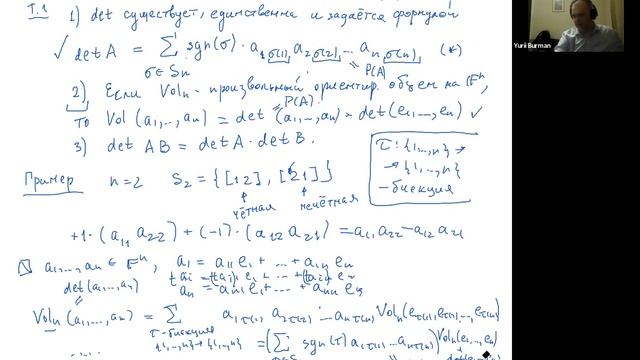 Т.1 1) det существует, единственна и задаётся формулой
✓ det A = ∑ sgn(σ) · a₁σ(1) a₂σ(2) ... aₙσ(n) (*)
σ∈Sₙ P(A)
2) Если Volₙ - произвольный ориентир. объем на 𝔽ⁿ,
P(A)
то Vol (a₁,..,aₙ) = det (a₁,..,aₙ) · det (e₁,..,eₙ) ✓
3) det AB = det A · det B.
τ: {1,..,n} →
→ {1,..,n}
- биекция
Пример n=2 S₂ = {[12], [21]}
чётная нечётная
+1·(a₁₁ a₂₂) + (-1)·(a₁₂ a₂₁) = a₁₁a₂₂ - a₁₂ a₂₁
a₁,..,aₙ ∈ 𝔽ⁿ, a₁ = a₁₁e₁ + ... + a₁ₙ eₙ
det(a₁,..,aₙ)
aₙ = aₙ₁e₁ + ... + aₙₙ eₙ
Volₙ (a₁,..,aₙ) = ∑ a₁τ(1) a₂τ(2) ... aₙτ(n) Volₙ(eτ(1), eτ(2),.., eτ(n))
τ-биекция
{1,..,n}→{1,..,n} = (∑ sgn(τ) a₁τ(1) ... aₙτ(n)) Vol(e₁,..,eₙ)
Yurii Burman